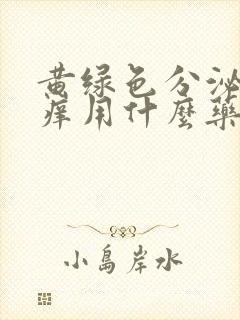 黄绿色分泌
痒用什麼藥
小島岸水